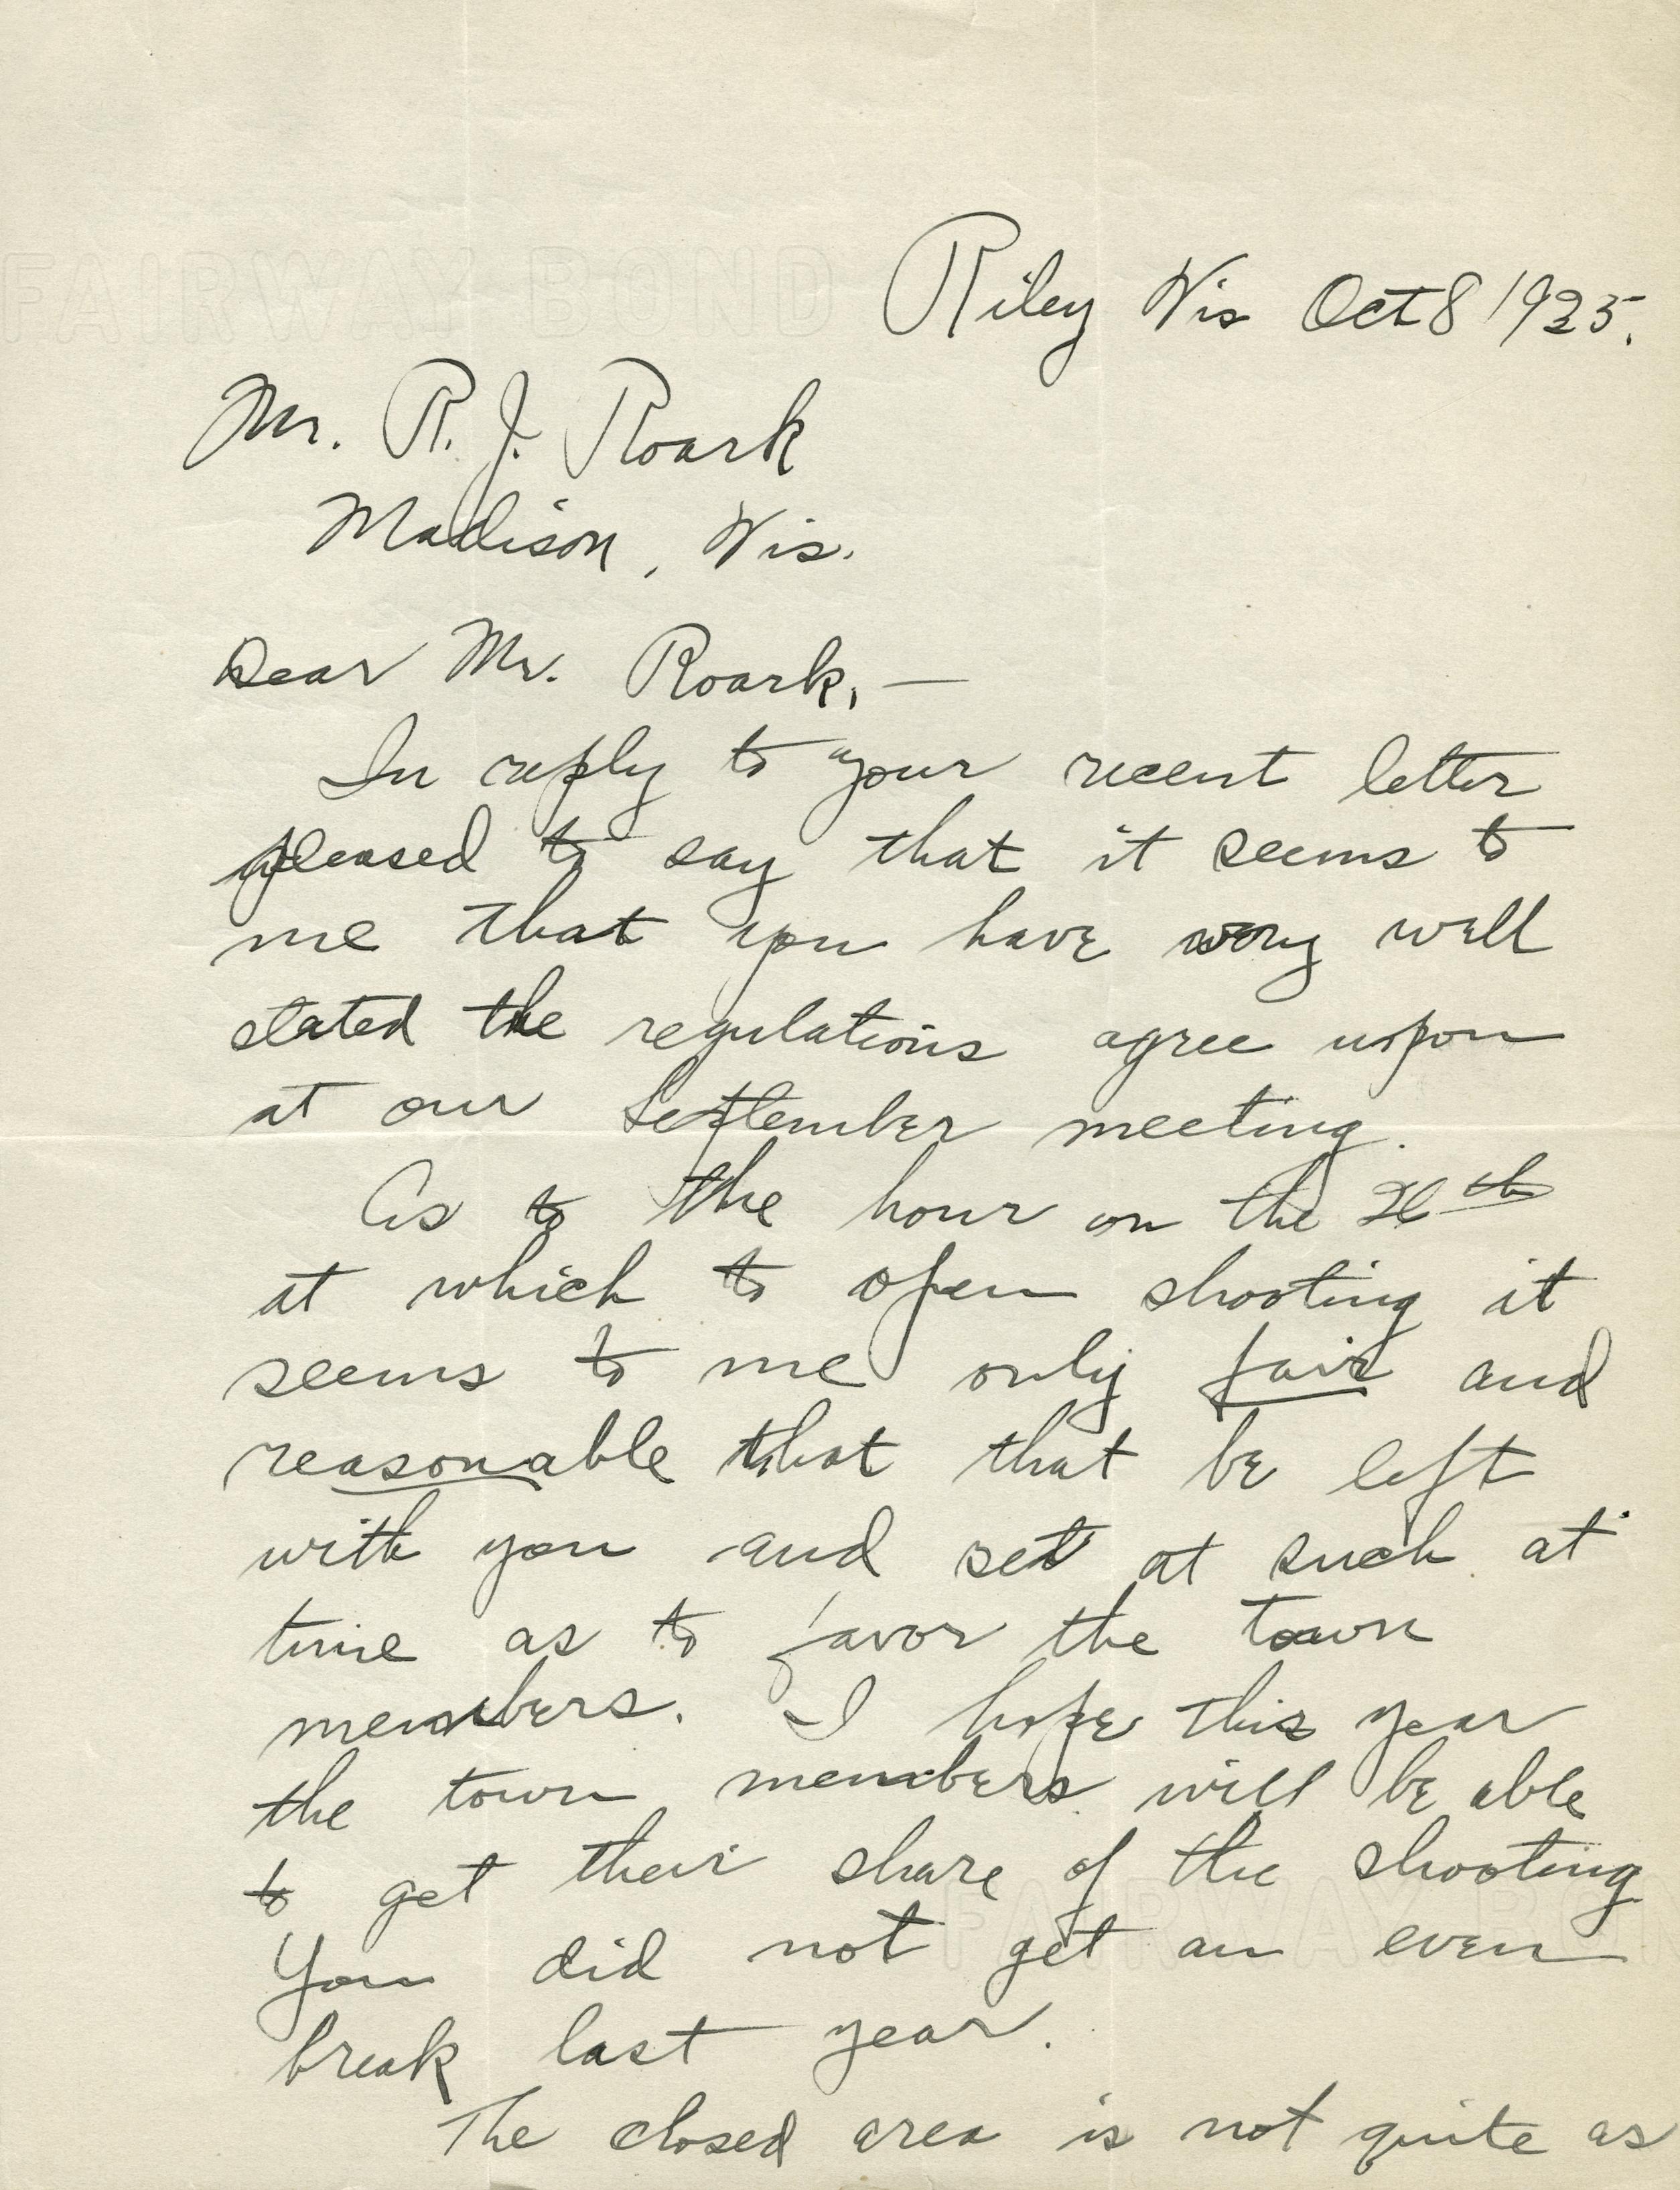 FAIRWAY BOND
Riley Wis Oct 8 1935.
Mr. R. J. Roark
Madison, Wis.
Dear Mr. Roark, —
In reply to your recent letter
pleased to say that it seems to
me that you have very well
stated the regulations agree upon
at our September meeting.
As to the hour on the 26th
at which to open shooting it
seems to me only fair and
reasonable that that be left
with you and set at such at
time as to favor the town
members. I hope this year
the town members will be able
to get their share of the shooting
FAIRWAY B
You did not get an even
break last year.
The closed area is not quite as